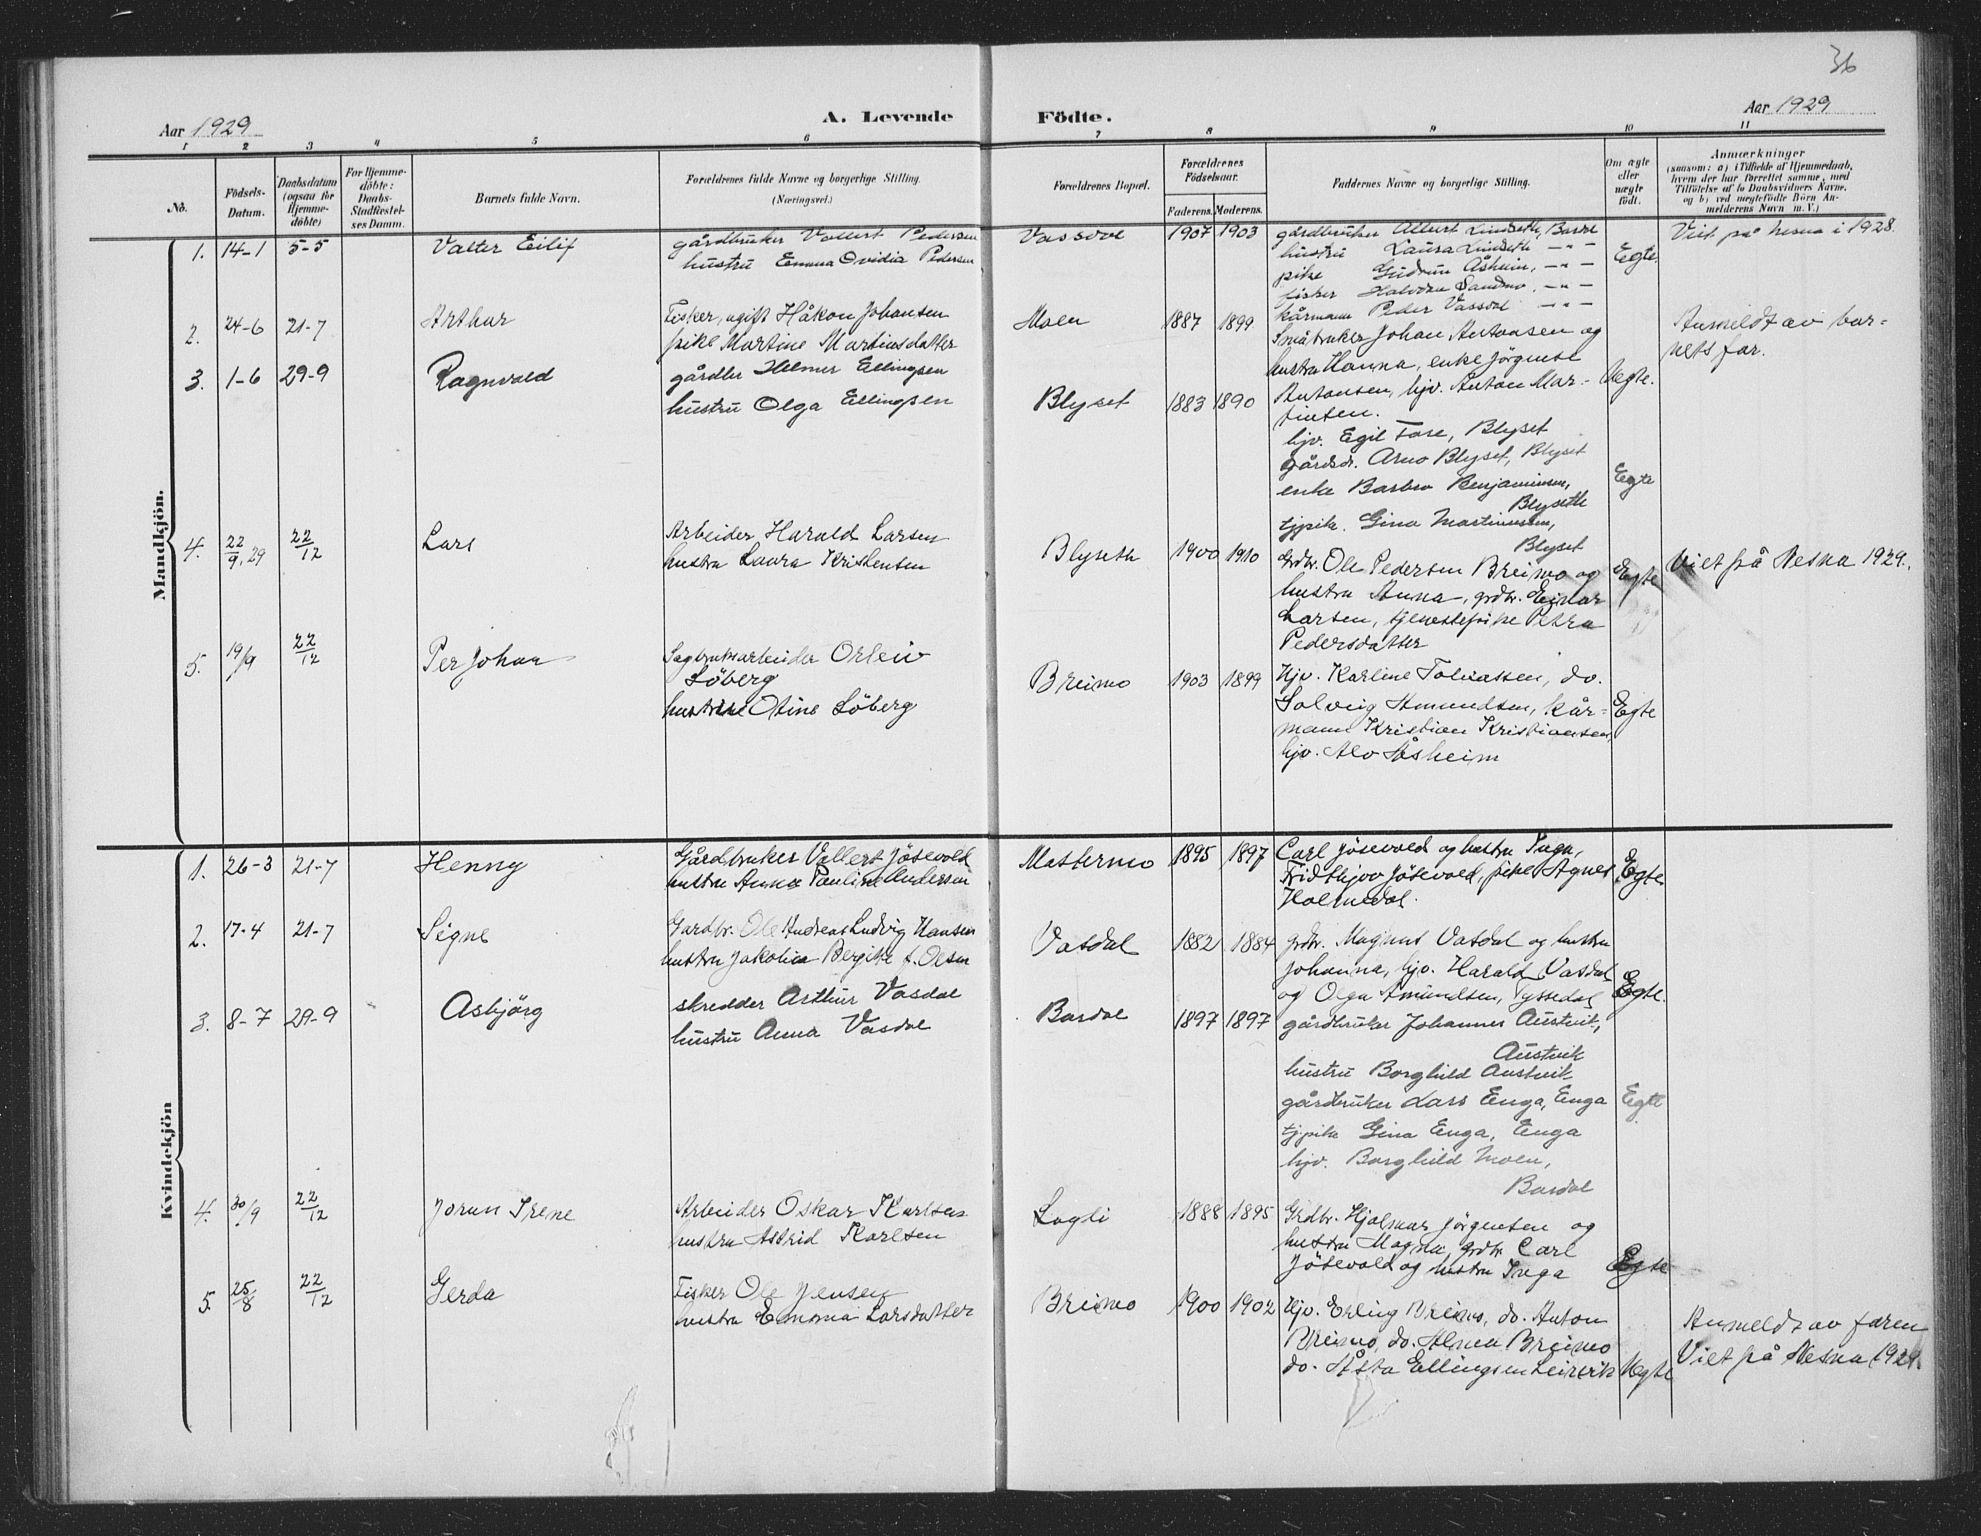 36
Aar 1929
A. Levende
Födte.
Aar 1929
1 2 3 4 5 6 7 8 9 10 11
No.
Födsels-
Datum.
Daabsdatum
(ogsaa for
Hjemme-
döbte)
For Hjemme-
döbte:
Daabs-
Stadfæstel-
ses Datum.
Barnets fulde Navn.
Forældrenes fulde Navne og borgerlige Stilling.
(Næringsvei.)
Forældrenes Bopæl.
Forældrenes
Födselsaar.
Faderens. Moderens.
Faddernes Navne og borgerlige Stilling.
Om ægte
eller
uægte
födt.
Anmærkninger
(saasom: a) i Tilfælde af Hjemmedaab,
hvem der har forrettet samme, med
Tilföielse af to Daabsvidners Navne,
og b) ved uægtefödte Börn An-
melderens Navn m. V.)
Mandkjön.
1. 14-1 5-5 Valter Eilif
gårdbruker Vallert Pedersen
hustru Emma Ovidia Pedersen
Vassdal 1907 1903
gårdbruker Albert Lindseth,
hustru Laura Lindseth -"-
pike Gudrun Åsheim, -"-
fisker Halvdan Sandmo, -"-
kårmann Peder Vassdal -"-
Egte.
Viet på Nesna i 1928.
2. 24-6 21-7 Arthur
Fisker, ugift Håkon Johansen
pike Martine Martinsdatter
Moen 1887 1899
Småbruker Johan Antonsen og
hustru Hanna, enke Jörgine
Antonsen, hjv. Anton Mar-
tinsen.
Uegte.
Anmeldt av bar-
nets far.
3. 1-6 29-9 Ragnvald
gårdbr Helmer Ellingsen
hustru Olga Ellingsen
Blyset 1883 1890
hjv. Egil Fore, Blyset
gårdsdr. Arno Blyset, Blyset
enke Barbro Benjaminsen,
Blyseth
tjpike. Gina Martinussen,
Blyset
Egte
4. 22/9.29 22/12 Lars
Arbeider Harald Larsen
hustru Laura Kristensen
Blyseth 1900 1910
Grdbr. Ole Pedersen Breimo og
hustru Anna, grdbr. Einar
Larsen, tjenestepike Petra
Pedersdatter
Egte
Viet på Nesna 1929.
5. 19/9 22/12 Per Johan
Sagbruksarbeider Orleiv
Söberg
hustru Otine Söberg
Breimo 1903 1899
Hjv. Karline Tobiassen, do.
Solveig Amundsen, kår-
mann Kristian Kristiansen,
hjv. Alv Åsheim
Egte
Kvindekjön
1. 26-3 21-7 Henny
Gårdbruker Vallert Jösevold
hustru Anna Pauline Andersen
Mastermo 1895 1897
Carl Jösevold og hustru Inga,
Fridthjov Jösevold, pike Agnes
Holmedal.
Egte
2. 17-4 21-7 Signe
Gardbr. Ole Andreas Ludvig Hansen
hustru Jakobia Bergitte f. Olsen
Vasdal 1882 1884
grdbr. Magnus Vasdal og hustru
Johanna, hjv. Harald Vasdal
og Olga Amundsen, Tyssedal
Egte.
3. 8-7 29-9 Asbjörg
skredder Arthur Vasdal
hustru Anna Vasdal
Bardal 1897 1897
gårdbruker Johannes Austvik,
Austvik
hustru Borghild Austvik
gårdbruker Lars Enga, Enga
tjpike Gina Enga, Enga
hjv. Borghild Moen,
Bardal
Egte
4. 30/9 22/12 Jorun Irene
Arbeider Oskar Karlsen
hustru Astrid Karlsen
Lagli 1888 1895
Grdbr. Hjalmar Jörgensen og
hustru Magna, grdbr Carl
Jösevold og hustru Inga
Egte
5. 25/8 22/12 Gerda
Fisker Ole Jensen
hustru Emma Larsdatter
Breimo 1900 1902
Hjv. Erling Breimo, do. Anton
Breimo, do. Alma Breimo
do. Åsta Ellingsen Leirvik
Uegte
Anmeldt av faren
Viet på Nesna 1929.